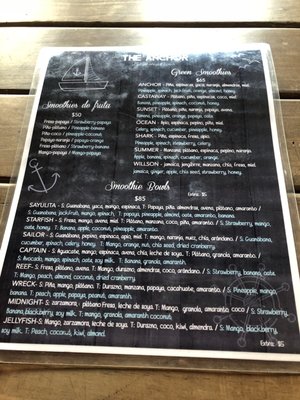 THE ANCHOR
Smoothies de fruta
$50
Fresa papaya / Strawberry-papaya
Piña-plátano / Pineapple-banana
Piña-coco / Pineapple-coconut
Papaya-naranja / Papaya-orange
Fresa-plátano / Strawberry-banana
Mango-papaya / Mango-papaya
Green Smoothies
$65
ANCHOR - Piña, espinaca, yaca, naranja, almendra, miel.
Pineapple, spinach, jack fruit, orange, almond, honey.
CASTAWAY - Plátano, piña, espinaca, coco, miel.
Banana, pineapple, spinach, coconut, honey.
SUNSET - Plátano, piña, naranja, papaya, avena.
Banana, pineapple, orange, papaya, oats.
OCEAN - Apio, espinaca, pepino, piña, miel.
Celery, spinach, cucumber, pineapple, honey.
SHARK - Piña, espinaca, fresa, apio.
Pineapple, spinach, strawberry, celery.
SUMMER - Manzana, plátano, espinaca, pepino, naranja.
Apple, banana, spinach, cucumber, orange.
WILLSON - Jamaica, jengibre, manzana, chia, fresa, miel.
Jamaica, ginger, apple, chia seed, strawberry, honey.
Extra: $15
Smoothie Bowls
$85
SAYULITA - S: Guanabana, yaca, mango, espinaca. T: Papaya, piña, almendra, avena, plátano, amaranto /
S: Guanabana, jackfruit, mango, spinach, T: papaya, pineapple, almond, oats, amaranto, banana.
STARFISH - S: Fresa, mango, avena, miel. T: Plátano, manzana, coco, piña, amaranto. / S: Strawberry, mango,
oats, honey. T: Banana, apple, coconut, pineapple, amaranto.
SAILOR - S: Guanabana, pepino, espinaca, apio, miel. T: Mango, naranja, nuez, chia, arándano. / S: Guanabana,
cucumber, spinach, celery, honey. T: Mango, orange, nut, chia seed, dried cranberry.
CAPTAIN - S: Aguacate, mango, espinaca, avena, chia, leche de soya. T: Plátano, granola, amaranto. /
S: Avocado, mango, spinach, oats, soy milk. T: Banana, granola, amaranto.
REEF- S: Fresa, plátano, avena. T: Mango, durazno, almendra, coco, arándano. / S: Strawberry, banana, oats.
T: Mango, peach, almond, coconut, dried cranberry.
WRECK- S: Piña, mango, plátano. T: Durazno, manzana, papaya, cacahuate, amaranto. / S: Pineapple, mango,
banana. T: peach, apple, papaya, peanut, amaranth.
MIDNIGHT- S: Zarzamora, plátano Fresa, leche de soya. T: Mango, granola, amaranto, coco / S:
Banana, blackberry, soy milk. T: mango, granola, amaranth, coconut.
JELLYFISH-S: Mango, zarzamora, leche de soya. T: Durazno, coco, kiwi, almendra. / S: Mango, blackberry,
soy milk. T: Peach, coconut, kiwi, almond.
Extra: $15